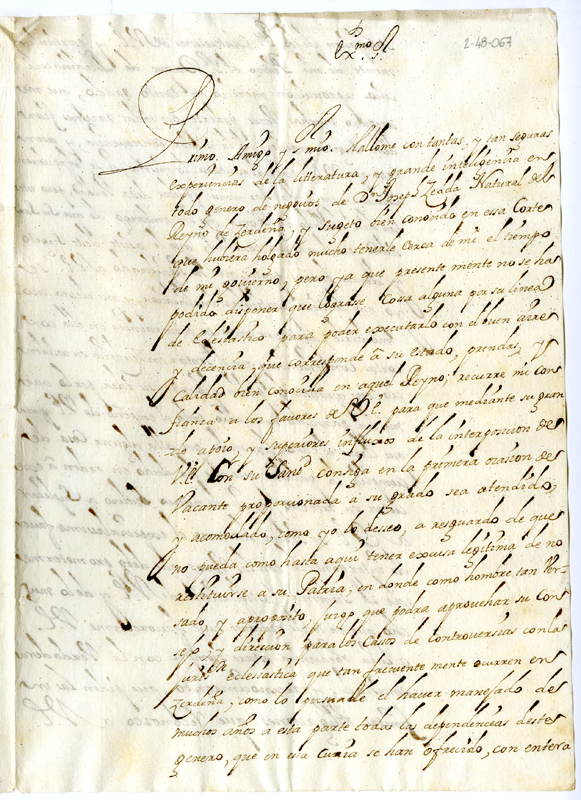 Exmo. Sr.
2-48-067
Primo. Amigo y Sr. mio. Hallome con tantas, y tan seguras
experiencias de la litteratura, y grande inteligencia en
todo genero de negocios de Dn. Joseph Zedda Natural del
Reyno de Zerdeña, y sugeto bien conocido en essa Corte
que hubiera holgado mucho tenerle cerca de mi el tiempo
de mi govierno, pero ya que presente mente no se ha
podido disponer que lograsse Cossa alguna por su linea
de Eclesiastico para poder executarlo con el buen aire
y decencia, que corresponde à su estado, prendas, y
Calidad bien conocida en aquel Reyno; recurre mi Con
fianza a los favores de V.E. para que mediante su gran
de apoio, y superiores influxos de la interposicion de
V.E. Con su Sand. consiga en la primera ocasion de
Vacante proporcionada a su grado sea atendido,
y acomodado, como yo lo deseo, a resguardo de que
no pueda como hasta aqui tener excusa legitima de no
restituirse a su Patria, en donde como hombre tan Ver-
sado, y aproposito, juzgo que podra aprovechar su Con
sejo, y direcion para los Casos de controversias con la
Jurisn. Eclesiastica que tan frecuente mente ocurren en
Zerdeña, como lo persuade el haver manejado de
muchos años a esta parte todas las dependencias deste
genero, que en essa Curia se han ofrecido, con entera